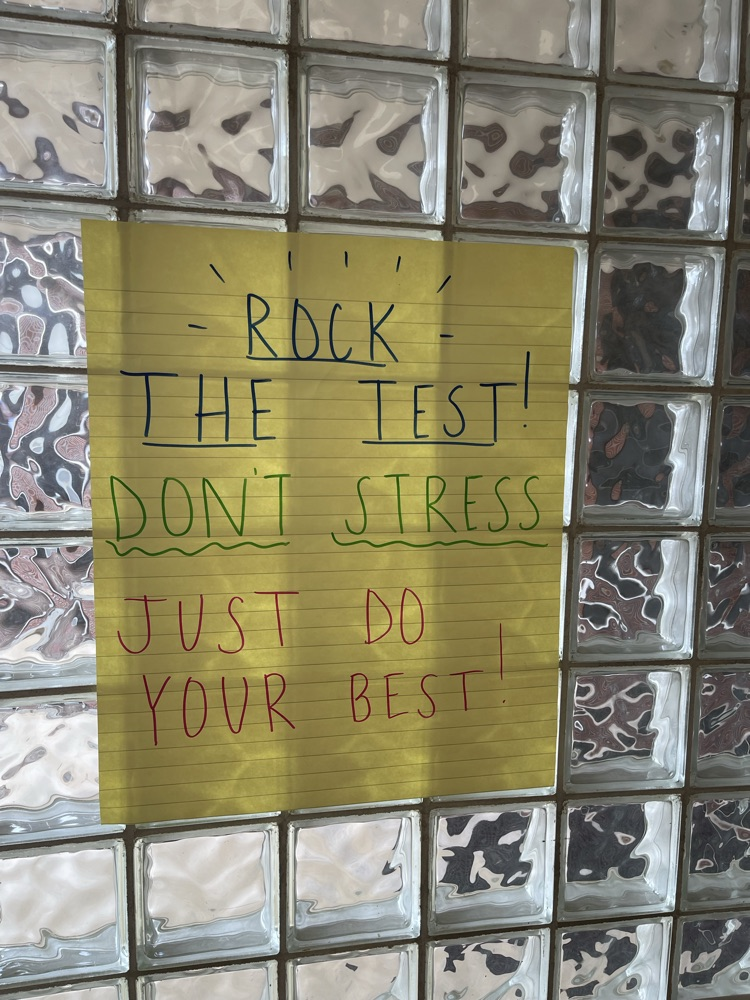 - ROCK -
THE TEST!
DON'T STRESS
JUST DO
YOUR BEST!